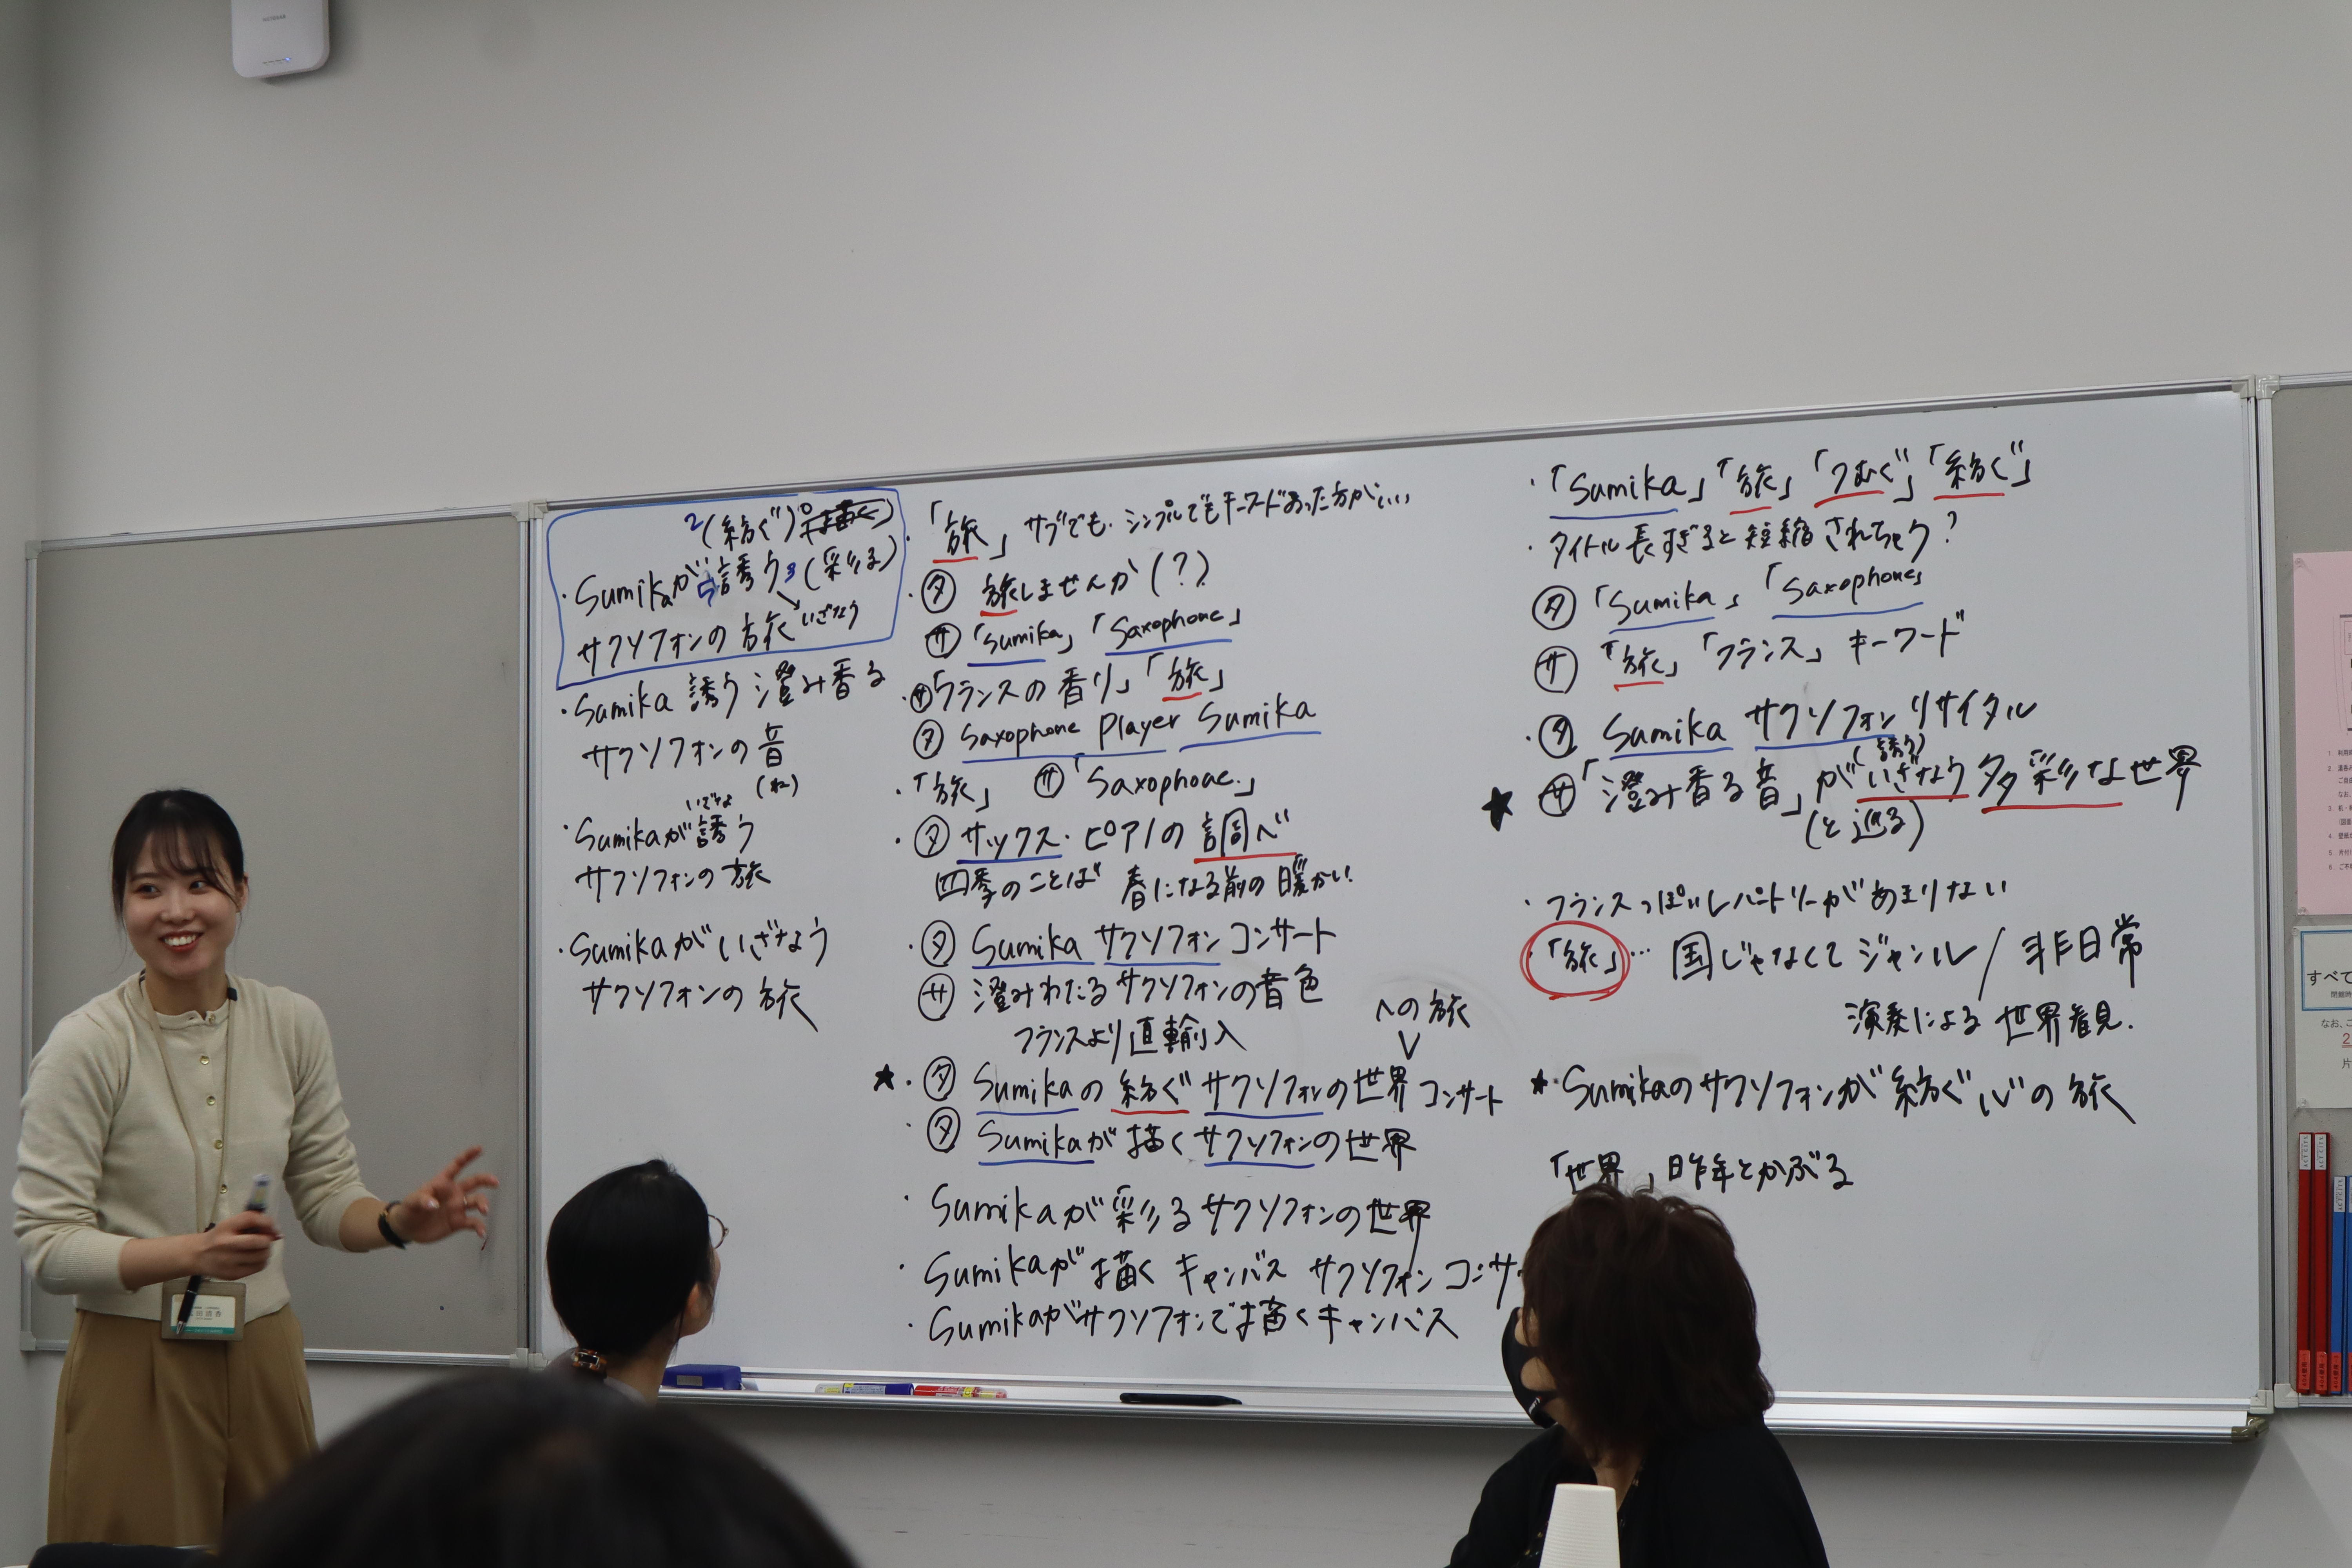 2(紡ぐ)
・Sumikaが誘う3(彩る)
いざなう
サクソフォンの旅
・Sumika 誘う 澄み香る
サクソフォンの音
(ね)
いざな
・Sumikaが誘う
サクソフォンの旅
・Sumikaがいざなう
サクソフォンの旅
・「旅」サブでも、シンプルでもキーワードあった方がいい
・タ 旅しませんか(?)
サ「Sumika」「Saxophone」
・サ「フランスの香り」「旅」
タ Saxophone Player Sumika
・「旅」 サ「Saxophone」
・タ サックス・ピアノの調べ
四季のことば 春になる前の暖かい
・タ Sumika サクソフォンコンサート
サ 澄みわたるサクソフォンの音色
フランスより直輸入
への旅
★・タ Sumikaの紡ぐサクソフォンの世界コンサート
・タ Sumikaが描くサクソフォンの世界
・Sumikaが彩るサクソフォンの世界
・Sumikaが描くキャンバス サクソフォンコンサ
・Sumikaがサクソフォンで描くキャンバス
・「Sumika」「旅」「つむぐ」「紡ぐ」
・タイトル長すぎると短縮されちゃう?
タ「Sumika」「Saxophone」
サ「旅」「フランス」キーワード
・タ Sumika サクソフォンリサイタル
(誘う)
★ サ「澄み香る音」がいざなう多彩な世界
(と巡る)
・フランスっぽいレパートリーがあまりない
・「旅」… 国じゃなくてジャンル/非日常
演奏による世界観見.
★・Sumikaのサクソフォンが紡ぐ心の旅
「世界」昨年とかぶる
すべて